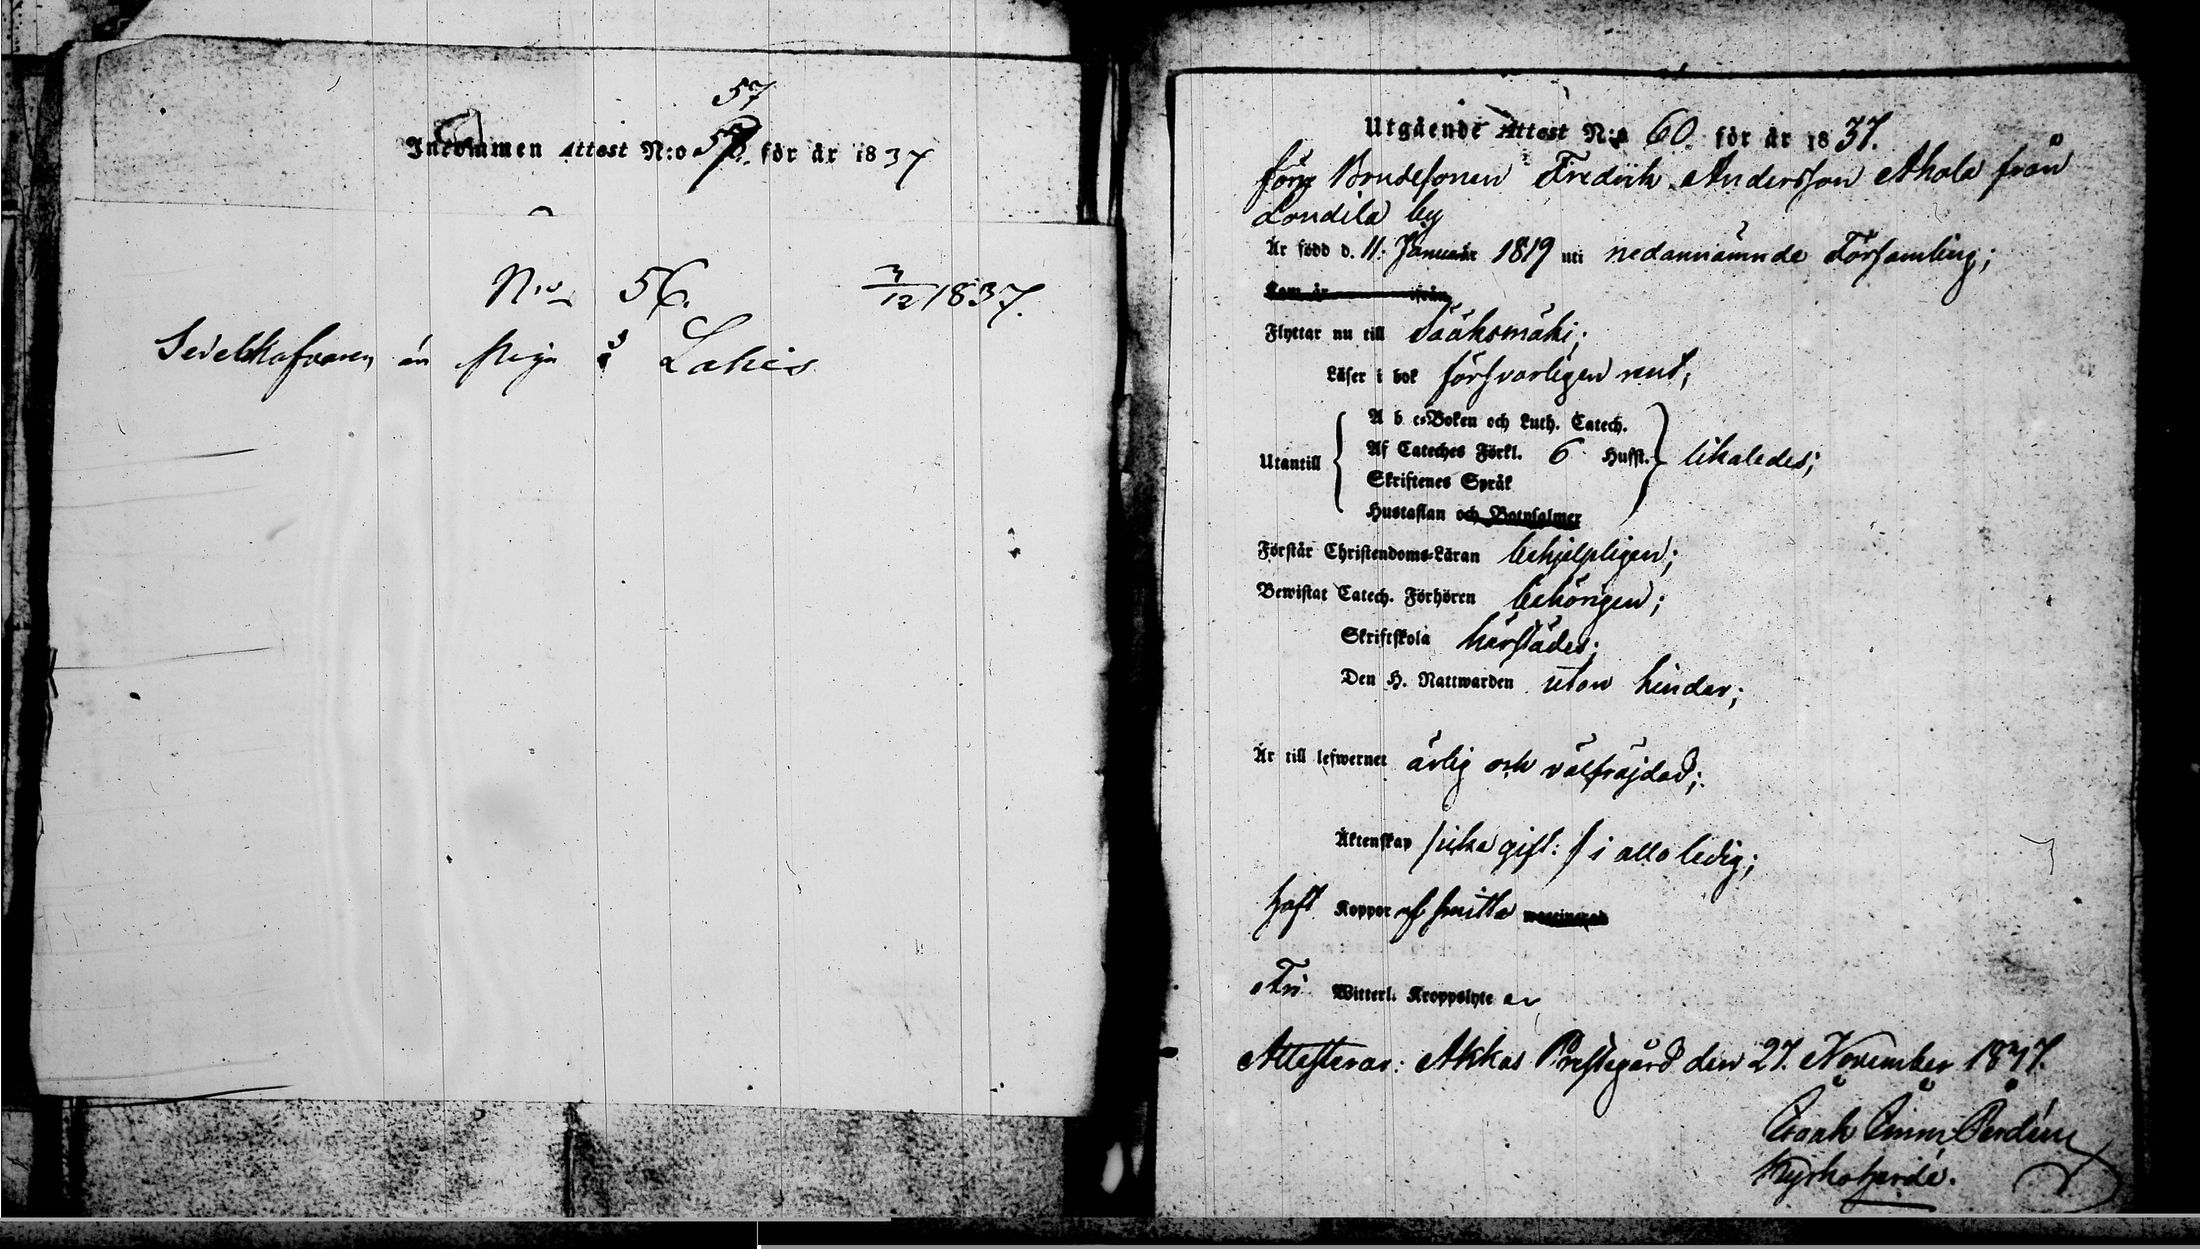 57
Inkommen Attest N:o 57. för år 1837
N:o 56. 3/12 1837.
Sedelhafvaren än Piga å Lahis
Utgående Attest N:o 60. för år 1837.
förre Bondesonen Fredrik Andersson Ahola från
Londila by
Är född d. 11. Januar 1819 uti nedannämnde Församling;
Kom år ifrån
Flyttar nu till Sääksmäki;
Läser i bok försvarligen rent;
A b c-Boken och Luth. Catech.
Utantill Af Cateches Förkl. 6 Husst. likaledes;
Skriftenes Språk
Hustaflan och Botpsalmer
Förstår Christendoms-Läran behjelpligen;
Bewistat Catech. Förhören behörigen;
Skriftskola härstädes;
Den H. Nattwarden utan hinder;
Är till lefwernet ärlig och välfräjdad;
Äktenskap /icke gift:/ i allo ledig;
haft Koppor af smitta waccinerad
Fri Witterl. Kroppslyte är
Attesterar: Akkas Prestegård den 27. November 1837.
Kyrkoherde.